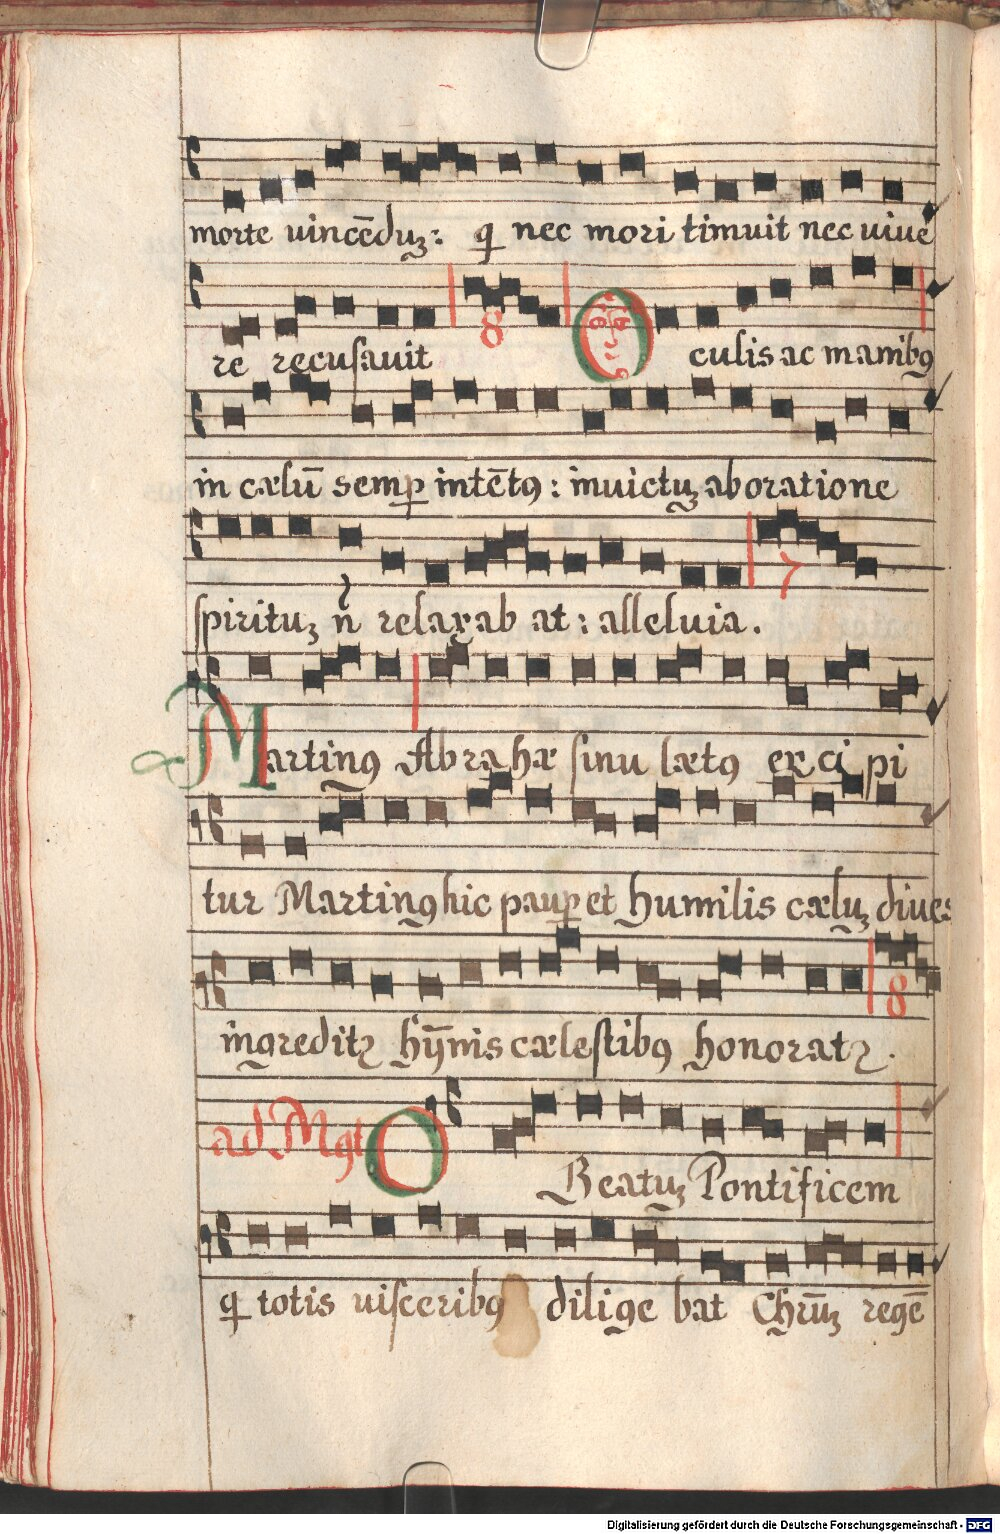 morte vincēduȝ: q nec mori timuit nec viue
re recusauit 8 O culis ac manibꝯ
in cælū semꝑ intētꝯ: inuictuȝ ab oratione
spirituȝ n̄ relaxab at: alleluia. 7
Martinꝯ Abrahæ sinu lætꝯ excipi
tur Martinꝯ hic pauꝑ et humilis cæluȝ diues
ingreditꝛ hȳnis cælestibꝯ honoratꝛ. 8
ad Mgt O Beatuȝ Pontificem
q totis uisceribꝯ dilige bat Chrūȝ regē
Digitalisierung gefördert durch die Deutsche Forschungsgemeinschaft - DFG